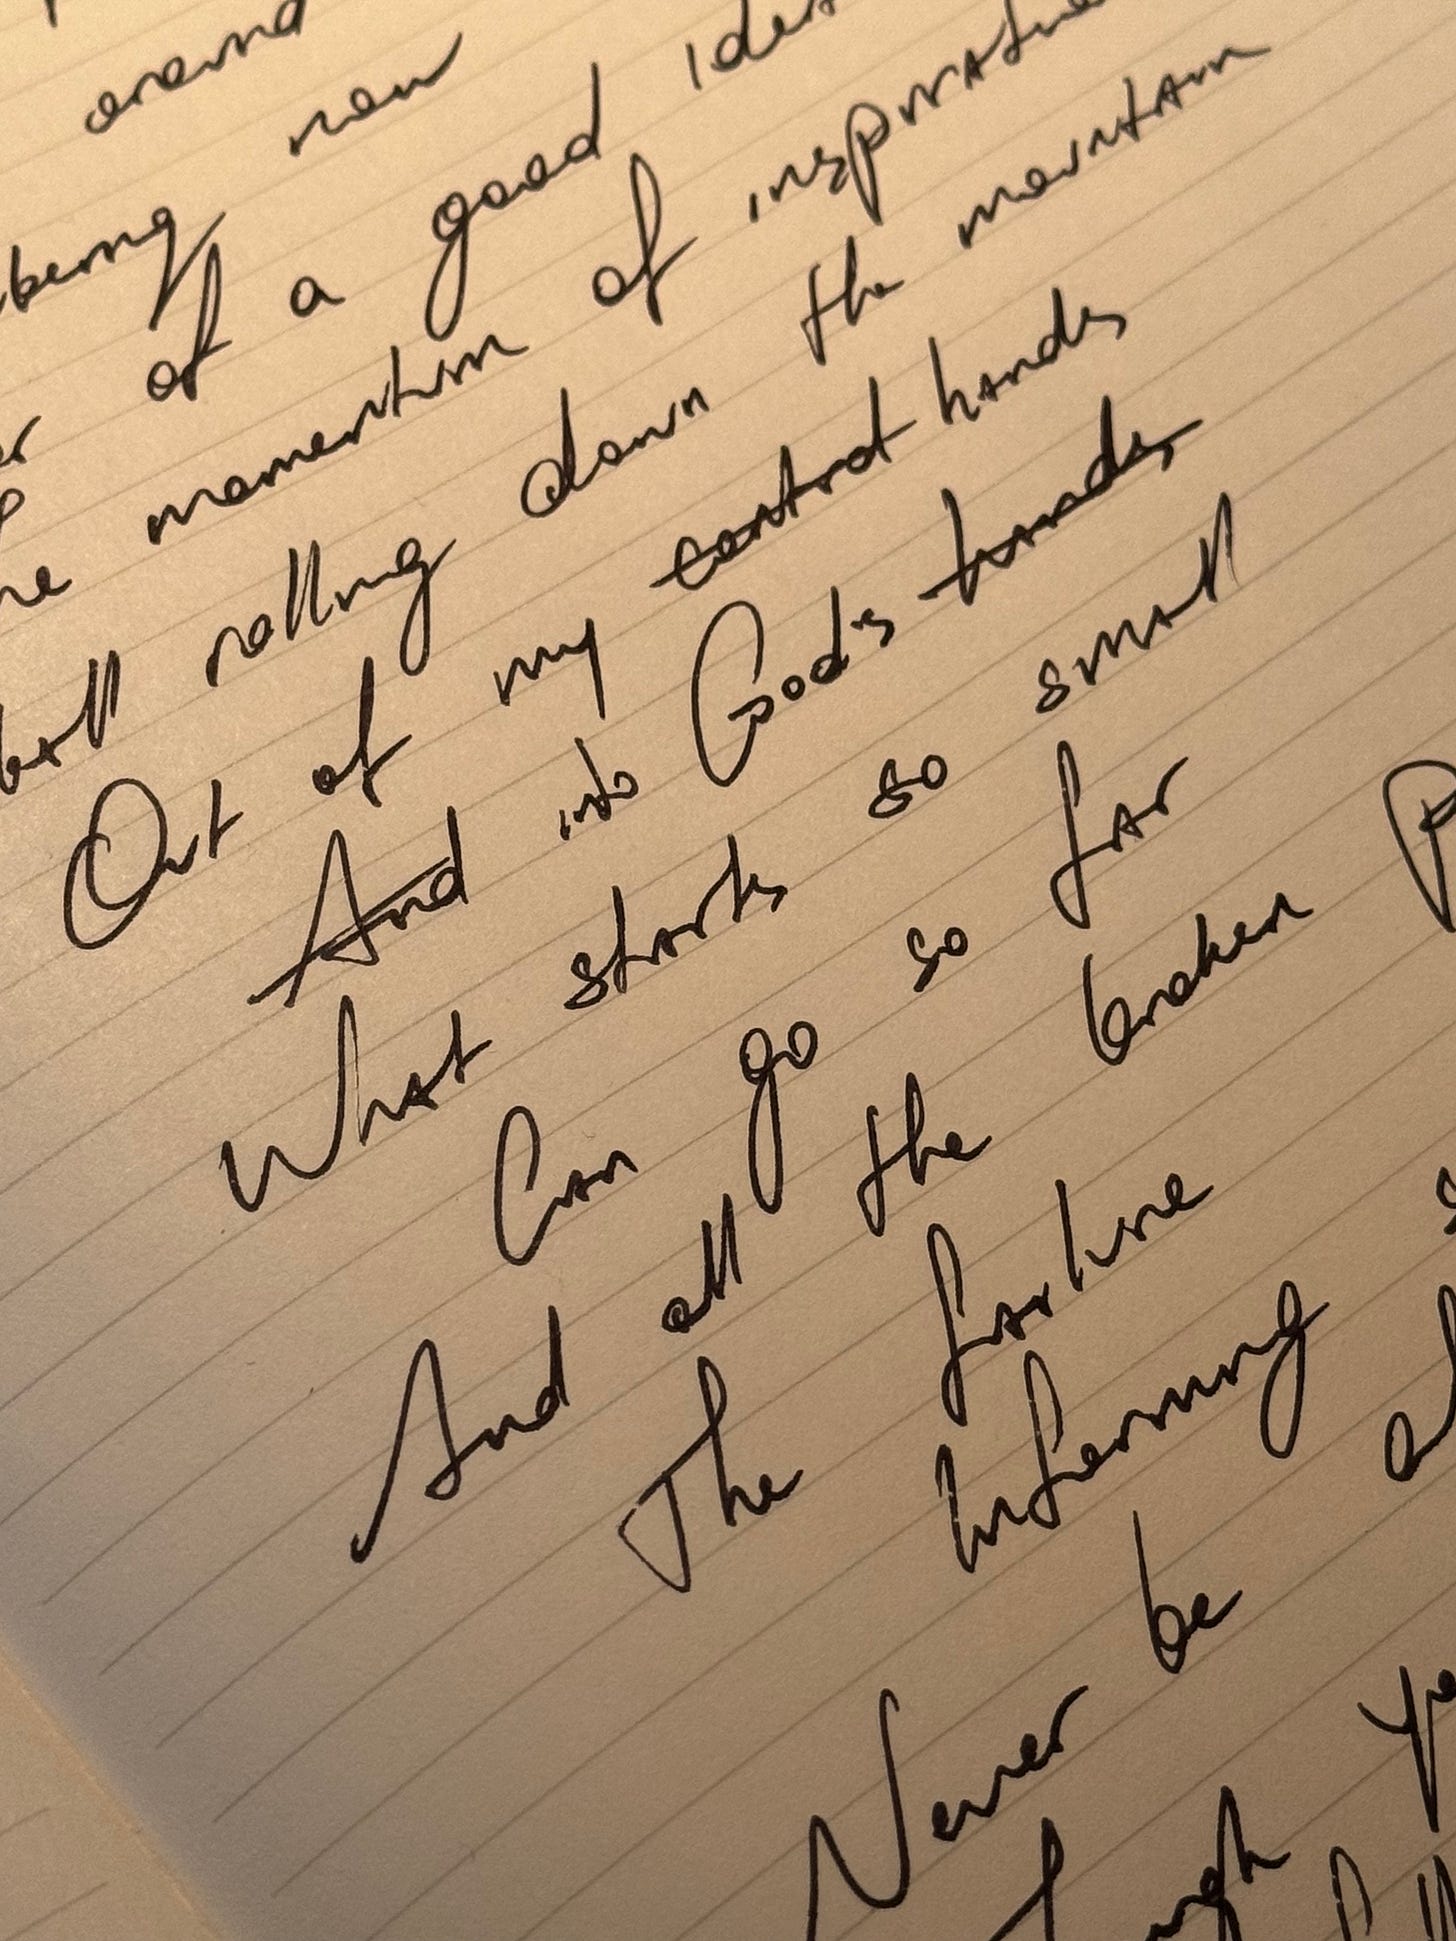 around
being new
of a good idea
momentum of inspiration
ball rolling down the mountain
Out of my control hands
And into God's hands
What starts so small
Can go so far
And all the broken
The fortune
Informing
Never be